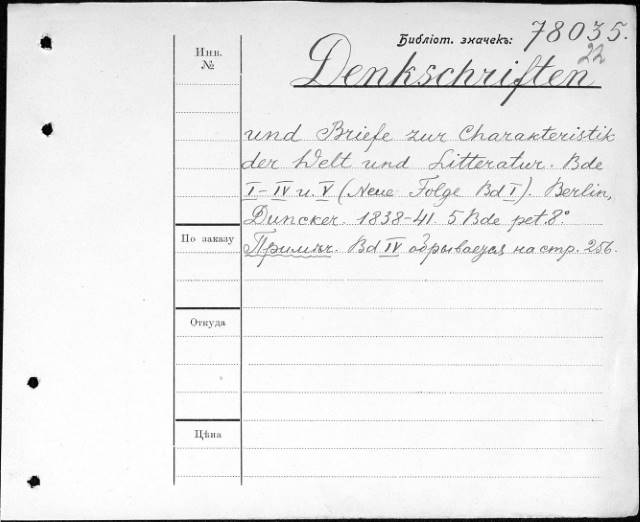 Библіот. значекъ: 78035.
22
Инв.
№
Denkschriften
und Briefe zur Charakteristik
der Welt und Litteratur. Bde
I-IV u. V (Neue Folge Bd I). Berlin,
Duncker. 1838-41. 5 Bde pet. 8°
По заказу
Примѣч. Bd IV обрывается на стр. 256.
Откуда
Цѣна